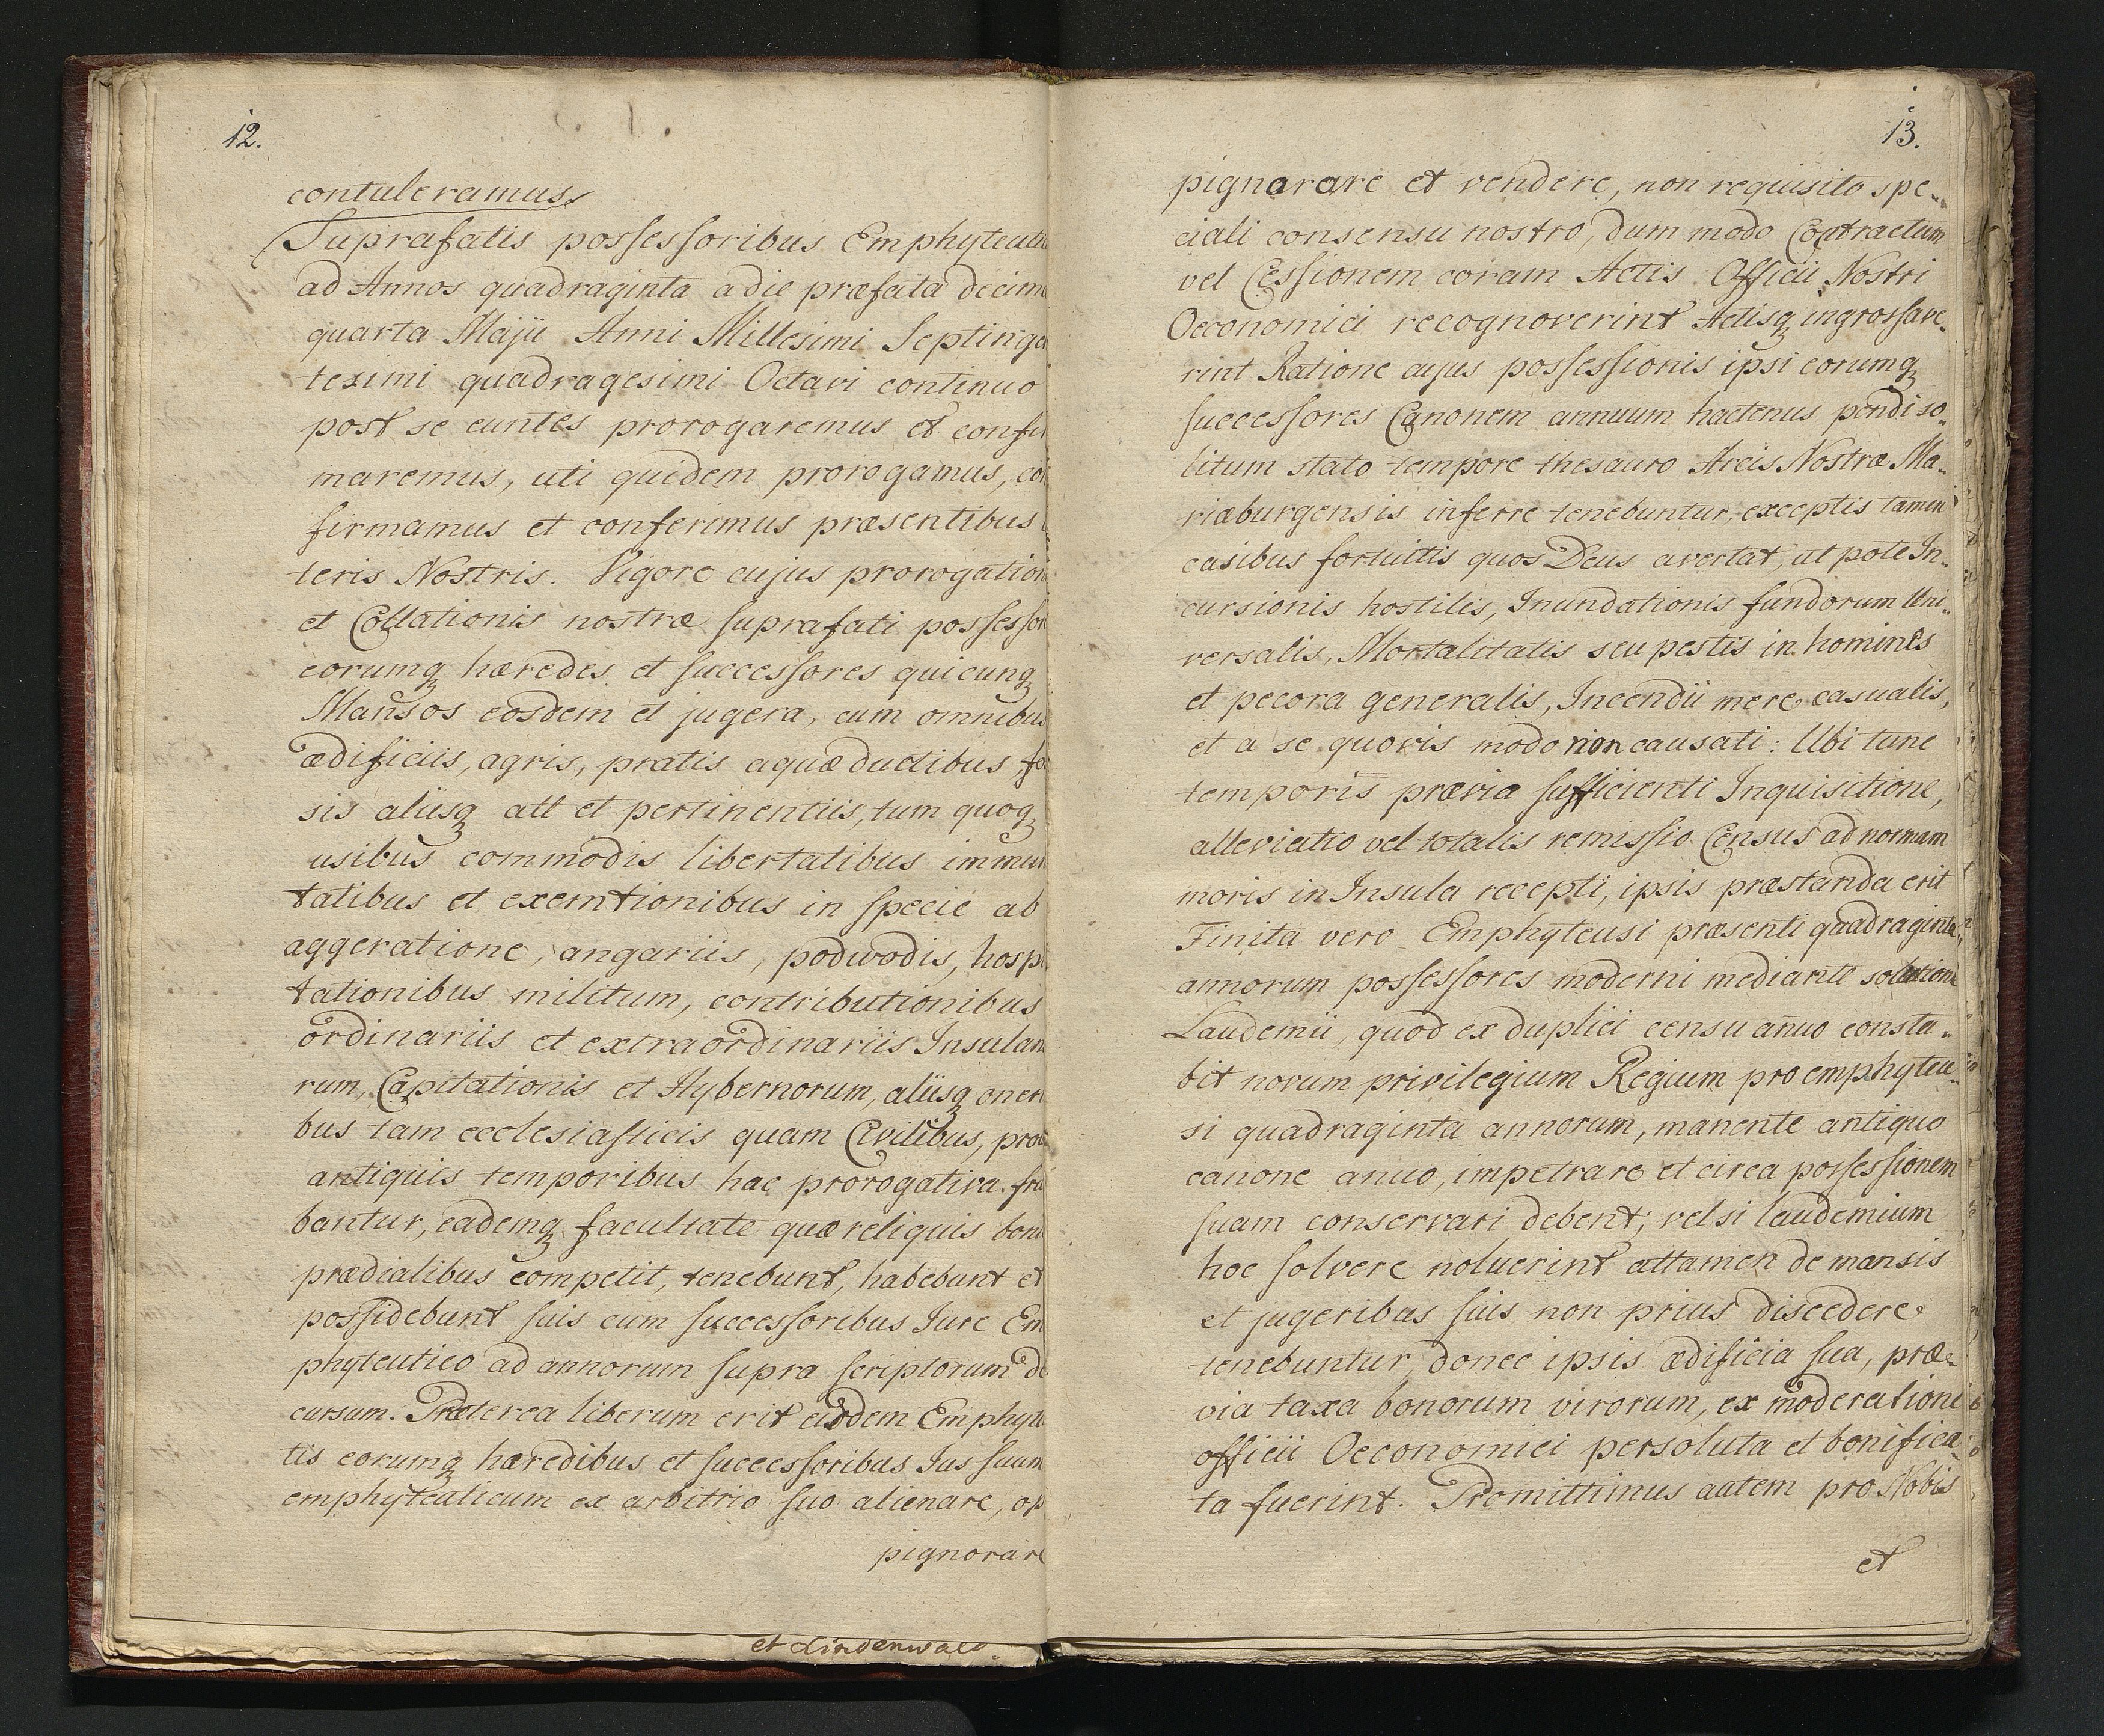 12.
contuleramus,
Suprafatis possessoribus Emphyteutic
ad Annos quadraginta a die præfata decim
quarta Maji Anni Millesimi Septingen
tesimi quadragesimi Octavi continuo
post se euntes prorogaremus et confir
maremus, uti quidem prorogamus, con
firmamus et conferimus præsentibus
teris Nostris. Vigore cujus prorogation
et Collationis nostræ suprafati possessor
eorumq hæredes et successores quicunq
Mansos eosdem et jugera, cum omnibus
ædificiis, agris, pratis aquæductibus, fos
sis aliisq att et pertinentiis, tum quoq
usibus commodis libertatibus immun
tatibus et exemtionibus in specie ab
aggeratione, angariis, podwodis, hospi
tationibus militum, contributionibus
ordinariis et extraordinariis Insulan
rum, Capitationis et Hybernorum, aliisq oneri
bus tam ecclesiasticis quam Civilibus, prou
antiquis temporibus hac prorogativa fru
bantur, eademq facultate quæ reliquis bon
prædialibus competit, tenebunt, habebunt et
possidebunt suis cum successoribus Jure Em
phyteutico ad annorum supra scriptorum de
cursum. Præterea liberum erit eisdem Emphyte
tis eorumq hæredibus et successoribus Jus suum
emphyteuticum ex arbitrio suo alienare, op
pignorare
et Lindenwald.
13.
pignorare et vendere, non requisito spe-
ciali consensu nostro, dum modo Contractum
vel Cessionem coram Actis Officii Nostri
Oeconomici recognoverint Actisq ingrossave-
rint Ratione cujus possessionis ipsi eorumq
successores Canonem annuum hactenus pendi so-
litum stato tempore thesauro Arcis Nostræ Ma-
riæburgensis inferre tenebuntur, exceptis tamen
casibus fortuitis quos Deus avertat, ut pote In-
cursionis hostilis, Inundationis fundorum Uni-
versalis, Mortalitatis seu pestis in homines
et pecora generalis, Incendii mere casualis,
et a se quovis modo non causati: Ubi tunc
temporis prævia sufficienti Inquisitione,
alleviatio vel totalis remissio Census ad normam
moris in Insula recepti, ipsis præstanda erit
Finita vero Emphyteusi præsenti quadraginta
annorum possessores moderni mediante solutione
Laudemii, quod ex duplici censu añuo consta-
bit novum privilegium Regium pro emphyteu-
si quadraginta annorum, manente antiquo
canone anuo, impetrare et circa possessionem
suam conservari debent; vel si laudemium
hoc solvere noluerint attamen de mansis
et jugeribus suis non prius discedere
tenebuntur, donec ipsis ædificia sua, præ-
via taxa bonorum virorum, ex moderatione
officii Oeconomici persoluta et bonifica-
ta fuerint. Promittimus autem pro Nobis
et